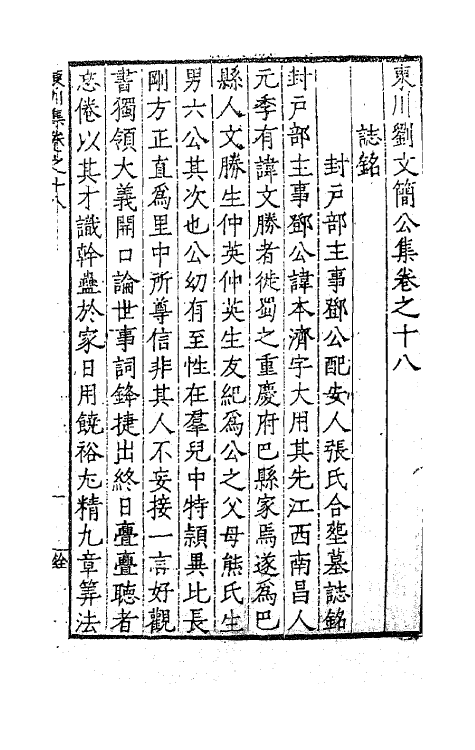 東川劉文簡公集卷之十八
誌銘
封戸部主事鄧公配安人張氏合塟墓誌銘
封戸部主事鄧公諱本濟字大用其先江西南昌人
元季有諱文勝者徙蜀之重慶府巴縣家焉遂爲巴
縣人文勝生仲英仲英生友紀爲公之父母熊氏生
男六公其次也公幼有至性在羣兒中特頴異比長
剛方正直爲里中所尊信非其人不妄接一言好觀
書獨領大義開口論世事詞鋒捷出終日亹亹聽者
忘倦以其才識幹蠱於家日用饒裕尤精九章算法
東川集卷之十八
一